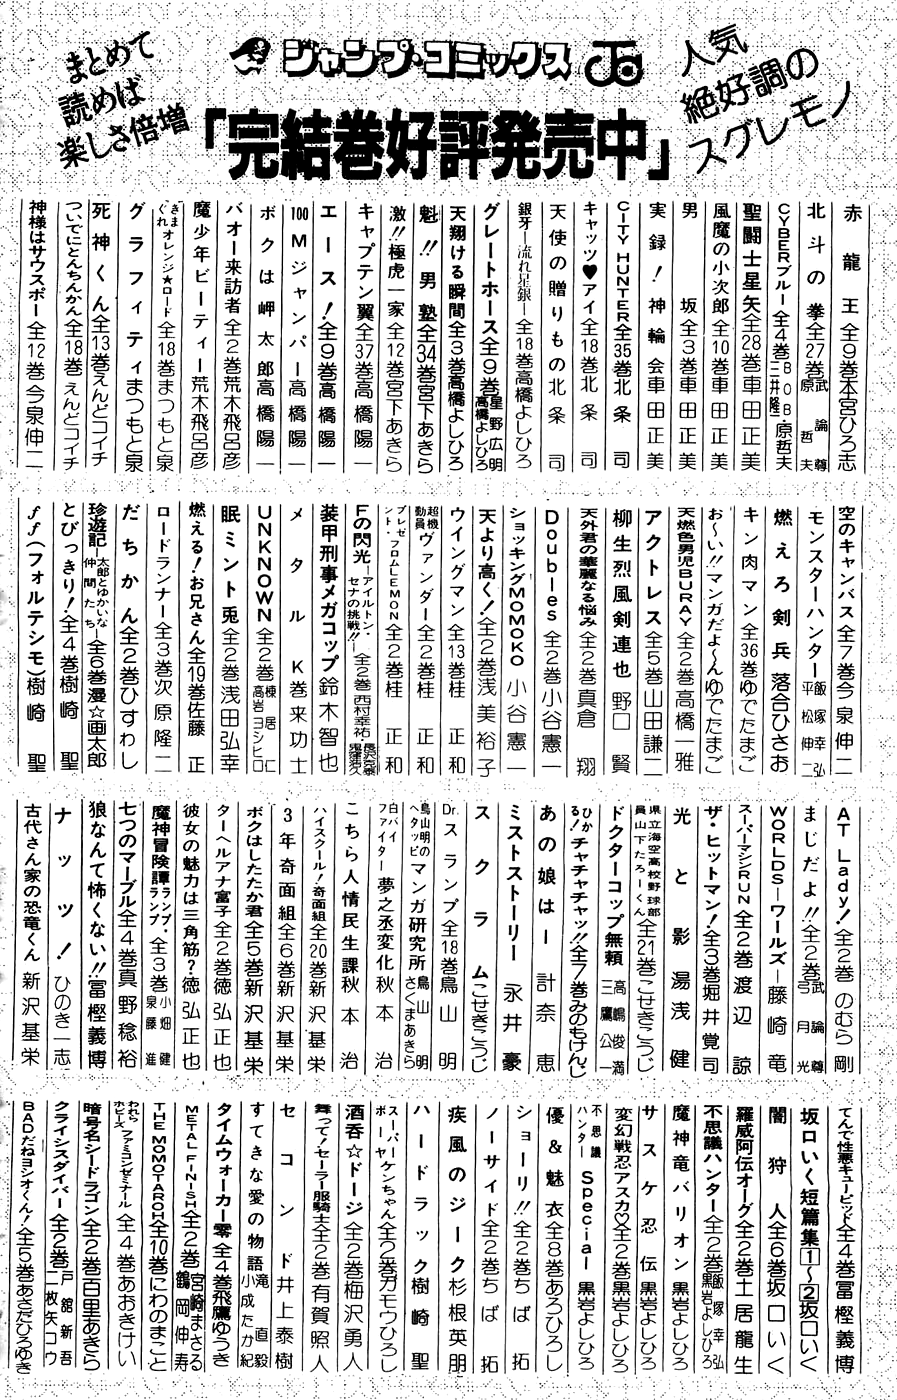 まとめて
読めば
楽しさ倍増
ジャンプ・コミックス
人気
絶好調の
スグレモノ
「完結巻好評発売中」
赤龍王 全9巻 本宮ひろ志
北斗の拳 全27巻 武論尊 原哲夫
CYBERブルー 全4巻 BOB 三井隆一 原哲夫
聖闘士星矢 全28巻 車田正美
風魔の小次郎 全10巻 車田正美
男坂 全3巻 車田正美
実録!神輪会 車田正美
CITY HUNTER 全35巻 北条司
キャッツ♥アイ 全18巻 北条司
天使の贈りもの 北条司
銀牙―流れ星 銀― 全18巻 高橋よしひろ
グレートホース 全9巻 星野広明 高橋よしひろ
天翔ける瞬間 全3巻 高橋よしひろ
魁!!男塾 全34巻 宮下あきら
激!!極虎一家 全12巻 宮下あきら
キャプテン翼 全37巻 高橋陽一
エース! 全9巻 高橋陽一
100Mジャンパー 高橋陽一
ボクは岬太郎 高橋陽一
バオー来訪者 全2巻 荒木飛呂彦
魔少年ビーティー 荒木飛呂彦
きまぐれオレンジ☆ロード 全18巻 まつもと泉
グラフィティ まつもと泉
死神くん 全13巻 えんどコイチ
ついでにとんちんかん 全18巻 えんどコイチ
神様はサウスポー 全12巻 今泉伸二
空のキャンバス 全7巻 今泉伸二
モンスターハンター 飯塚幸弘 平松伸二
燃えろ剣兵 落合ひさお
キン肉マン 全36巻 ゆでたまご
お〜い!!マンガだよ〜ん ゆでたまご
天燃色男児BURAY 全2巻 高橋一雅
アクトレス 全5巻 山田謙二
柳生烈風剣連也 野口賢
天外君の華麗なる悩み 全2巻 真倉翔
Doubles 全2巻 小谷憲一
ショッキングMOMOKO 小谷憲一
天より高く! 全2巻 浅美裕子
ウイングマン 全13巻 桂正和
超機動員ヴァンダー 全2巻 桂正和
プレゼント・フロムLEMON 全2巻 桂正和
Fの閃光―アイルトン・セナの挑戦!!― 全2巻 西村幸祐
装甲刑事メガコップ 鈴木智也
メタルK 巻来功士
UNKNOWN 全2巻 棟居仁 高岩ヨシヒロ
眠ミント兎 全2巻 浅田弘幸
燃える!お兄さん 全19巻 佐藤正
ロードランナー 全3巻 次原隆二
だちかん 全2巻 ひすわし
珍遊記―太郎とゆかいな仲間たち― 全6巻 漫☆画太郎
とびっきり! 全4巻 樹崎聖
ff(フォルテシモ) 樹崎聖
AT Lady! 全2巻 のむら剛
まじだよ!! 全2巻 武論尊 弓月光
WORLDS―ワールズ― 藤崎竜
スーパーマシンRUN 全2巻 渡辺諒
ザ・ヒットマン! 全3巻 堀井覚司
光と影 湯浅健
県立海空高校野球部員山下たろーくん 全21巻 こせきこうじ
ドクターコップ無頼 高嶋俊満 三鷹公一
ひかる!チャチャチャッ!! 全7巻 みのもけんじ
あの娘は― 計奈恵
ミストストーリー 永井豪
スクラム こせきこうじ
Dr.スランプ 全18巻 鳥山明
鳥山明のヘタッピマンガ研究所 鳥山明 さくまあきら
白バイファイター夢之丞変化 秋本治
こちら人情民生課 秋本治
ハイスクール!奇面組 全20巻 新沢基栄
3年奇面組 全6巻 新沢基栄
ボクはしたたか君 全5巻 新沢基栄
ターヘルアナ富子 全2巻 徳弘正也
彼女の魅力は三角筋? 徳弘正也
魔神冒険譚ランプ・ランプ 全3巻 小畑健 泉藤進
七つのマーブル 全4巻 真野稔裕
狼なんて怖くない!! 冨樫義博
ナッツ! ひのき一志
古代さん家の恐竜くん 新沢基栄
てんで性悪キューピッド 全4巻 冨樫義博
坂口いく短篇集1〜2 坂口いく
闇狩人 全6巻 坂口いく
羅威阿伝オーグ 全2巻 土居龍生
不思議ハンター 全2巻 飯塚幸弘 黒岩よしひろ
魔神竜バリオン 黒岩よしひろ
サスケ忍伝 黒岩よしひろ
変幻戦忍アスカ♡ 全2巻 黒岩よしひろ
不思議ハンターSpecial 黒岩よしひろ
優&魅衣 全8巻 あろひろし
ショーリ!! 全2巻 ちば拓
ノーサイド 全2巻 ちば拓
疾風のジーク 杉根英朋
ハードラック 樹崎聖
スーパーケンちゃんボーヤ 全2巻 ガモウひろし
酒呑☆ドージ 全2巻 梅沢勇人
舞って!セーラー服騎士 全2巻 有賀照人
セコンド 井上泰樹
すてきな愛の物語 滝直毅 小成たか紀
タイムウォーカー零 全4巻 飛鷹ゆうき
METAL FINISH 全2巻 宮崎まさる 鶴岡伸寿
THE MOMOTAROH 全10巻 にわのまこと
われらホビーズ ファミコンゼミナール 全4巻 あおきけい
暗号名シードラゴン 全2巻 百里あきら
クライシスダイバー 全2巻 戸舘新吾 二枚矢コウ
BADだねヨシオくん! 全5巻 あさだひろゆき